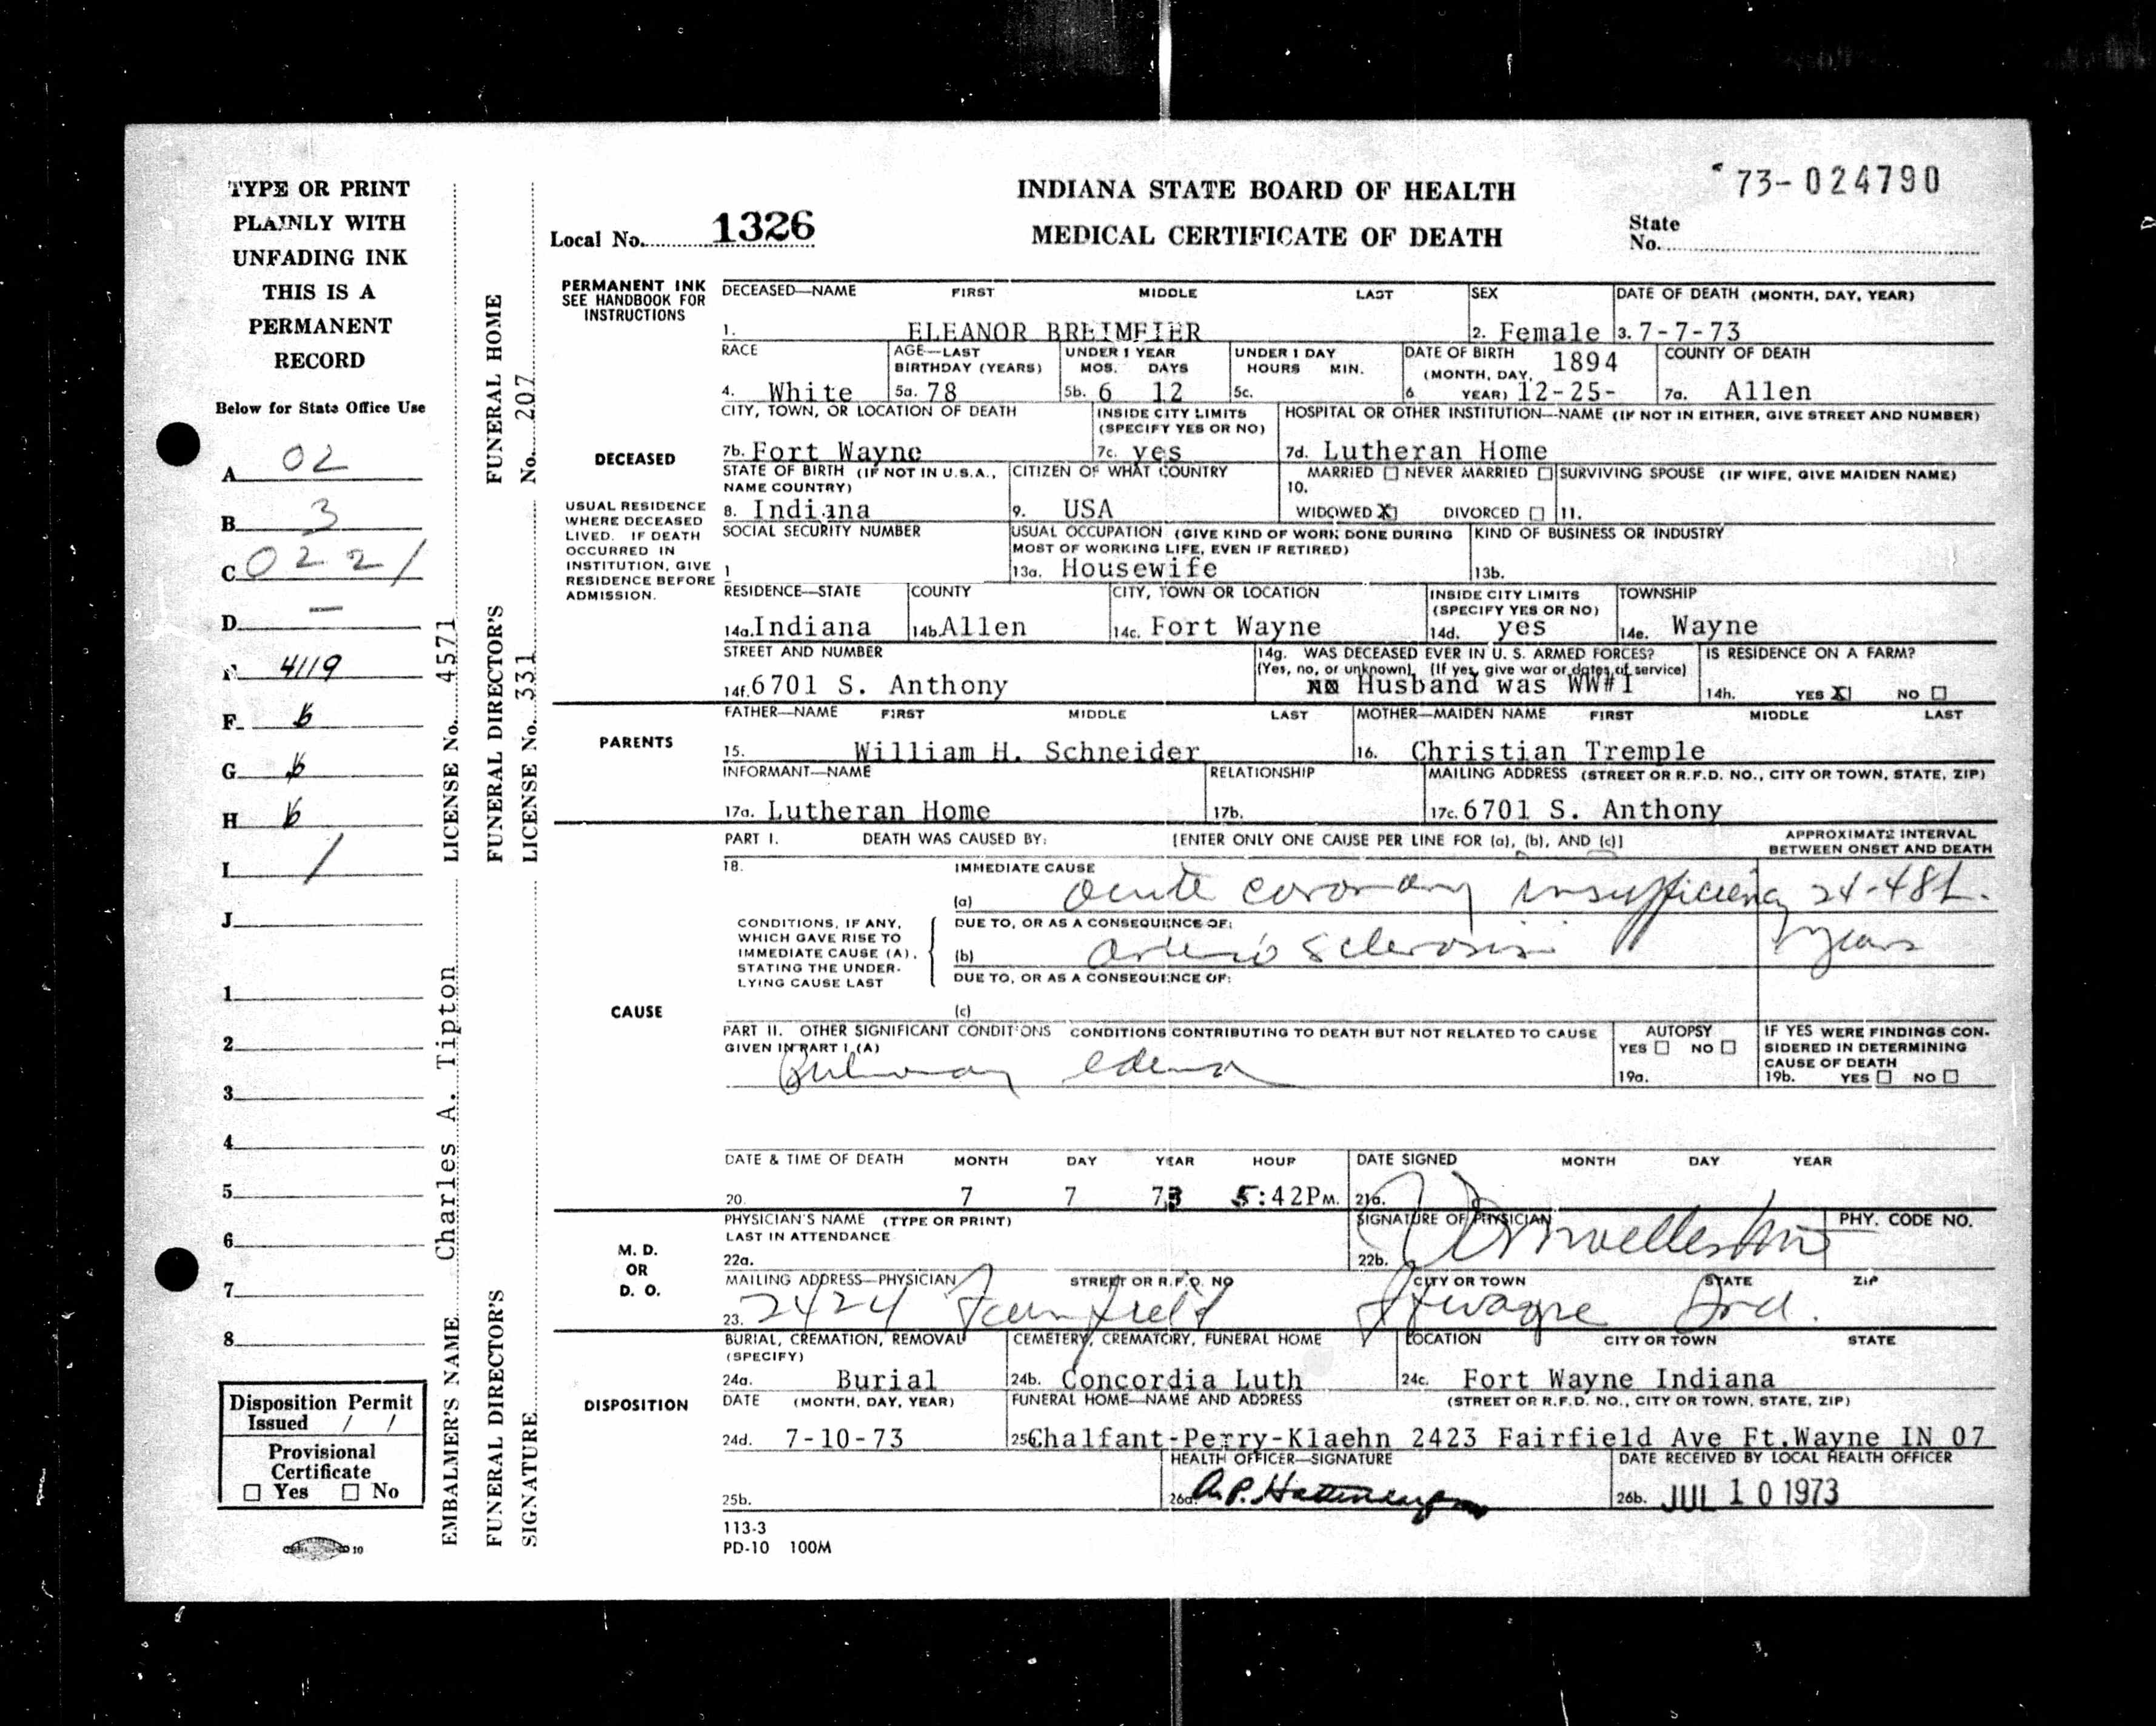 TYPE OR PRINT
PLAINLY WITH
UNFADING INK
THIS IS A
PERMANENT
RECORD
Below for State Office Use
A 02
B 3
C 0221
D —
4119
F
G
H
I /
J
1
2
3
4
5
6
7
8
Disposition Permit
Issued / /
Provisional
Certificate
☐ Yes ☐ No
10
EMBALMER'S NAME Charles A. Tipton LICENSE No. 4571
FUNERAL DIRECTOR'S FUNERAL DIRECTOR'S FUNERAL HOME
SIGNATURE LICENSE No. 331 No. 207
INDIANA STATE BOARD OF HEALTH
MEDICAL CERTIFICATE OF DEATH
73-024790
Local No. 1326
State
No.
PERMANENT INK
SEE HANDBOOK FOR
INSTRUCTIONS
DECEASED—NAME FIRST MIDDLE LAST SEX DATE OF DEATH (MONTH, DAY, YEAR)
1. ELEANOR BREIMEIER 2. Female 3. 7-7-73
RACE AGE—LAST BIRTHDAY (YEARS) UNDER 1 YEAR MOS. DAYS UNDER 1 DAY HOURS MIN. DATE OF BIRTH (MONTH, DAY, YEAR) COUNTY OF DEATH
4. White 5a. 78 5b. 6 12 5c. 6 12-25- 1894 7a. Allen
CITY, TOWN, OR LOCATION OF DEATH INSIDE CITY LIMITS (SPECIFY YES OR NO) HOSPITAL OR OTHER INSTITUTION—NAME (IF NOT IN EITHER, GIVE STREET AND NUMBER)
DECEASED
7b. Fort Wayne 7c. yes 7d. Lutheran Home
STATE OF BIRTH (IF NOT IN U.S.A., NAME COUNTRY) CITIZEN OF WHAT COUNTRY MARRIED ☐ NEVER MARRIED ☐ SURVIVING SPOUSE (IF WIFE, GIVE MAIDEN NAME)
8. Indiana 9. USA 10. WIDOWED X DIVORCED ☐ 11.
USUAL RESIDENCE
WHERE DECEASED
LIVED. IF DEATH
OCCURRED IN
INSTITUTION, GIVE
RESIDENCE BEFORE
ADMISSION.
SOCIAL SECURITY NUMBER USUAL OCCUPATION (GIVE KIND OF WORK DONE DURING MOST OF WORKING LIFE, EVEN IF RETIRED) KIND OF BUSINESS OR INDUSTRY
1 13a. Housewife 13b.
RESIDENCE—STATE COUNTY CITY, TOWN OR LOCATION INSIDE CITY LIMITS (SPECIFY YES OR NO) TOWNSHIP
14a. Indiana 14b. Allen 14c. Fort Wayne 14d. yes 14e. Wayne
STREET AND NUMBER 14g. WAS DECEASED EVER IN U. S. ARMED FORCES? IS RESIDENCE ON A FARM?
(Yes, no, or unknown) (If yes, give war or dates of service)
14f. 6701 S. Anthony Husband was WW#1 14h. YES X NO ☐
PARENTS
FATHER—NAME FIRST MIDDLE LAST MOTHER—MAIDEN NAME FIRST MIDDLE LAST
15. William H. Schneider 16. Christian Tremple
INFORMANT—NAME RELATIONSHIP MAILING ADDRESS (STREET OR R.F.D. NO., CITY OR TOWN, STATE, ZIP)
17a. Lutheran Home 17b. 17c. 6701 S. Anthony
PART I. DEATH WAS CAUSED BY: [ENTER ONLY ONE CAUSE PER LINE FOR (a), (b), AND (c)] APPROXIMATE INTERVAL BETWEEN ONSET AND DEATH
18. IMMEDIATE CAUSE
(a) acute coronary insufficiency 24-48h.
CONDITIONS, IF ANY,
WHICH GAVE RISE TO
IMMEDIATE CAUSE (A),
STATING THE UNDER-
LYING CAUSE LAST
DUE TO, OR AS A CONSEQUENCE OF:
(b) arterio sclerosis years
DUE TO, OR AS A CONSEQUENCE OF:
(c)
CAUSE
PART II. OTHER SIGNIFICANT CONDITIONS CONDITIONS CONTRIBUTING TO DEATH BUT NOT RELATED TO CAUSE GIVEN IN PART I (A)
Pulmonary edema
AUTOPSY
YES ☐ NO ☐
19a.
IF YES WERE FINDINGS CON-
SIDERED IN DETERMINING
CAUSE OF DEATH
19b. YES ☐ NO ☐
DATE & TIME OF DEATH MONTH DAY YEAR HOUR DATE SIGNED MONTH DAY YEAR
20. 7 7 73 5:42PM. 21a.
M. D.
OR
D. O.
PHYSICIAN'S NAME (TYPE OR PRINT) SIGNATURE OF PHYSICIAN PHY. CODE NO.
LAST IN ATTENDANCE
22a. 22b.
MAILING ADDRESS—PHYSICIAN STREET OR R.F.D. NO CITY OR TOWN STATE ZIP
23. 2424 Fairfield Ft Wayne Ind.
DISPOSITION
BURIAL, CREMATION, REMOVAL (SPECIFY) CEMETERY, CREMATORY, FUNERAL HOME LOCATION CITY OR TOWN STATE
24a. Burial 24b. Concordia Luth 24c. Fort Wayne Indiana
DATE (MONTH, DAY, YEAR) FUNERAL HOME—NAME AND ADDRESS (STREET OR R.F.D. NO., CITY OR TOWN, STATE, ZIP)
24d. 7-10-73 25a Chalfant-Perry-Klaehn 2423 Fairfield Ave Ft.Wayne IN 07
HEALTH OFFICER—SIGNATURE DATE RECEIVED BY LOCAL HEALTH OFFICER
25b. 26a. A.P. 26b. JUL 10 1973
113-3
PD-10 100M